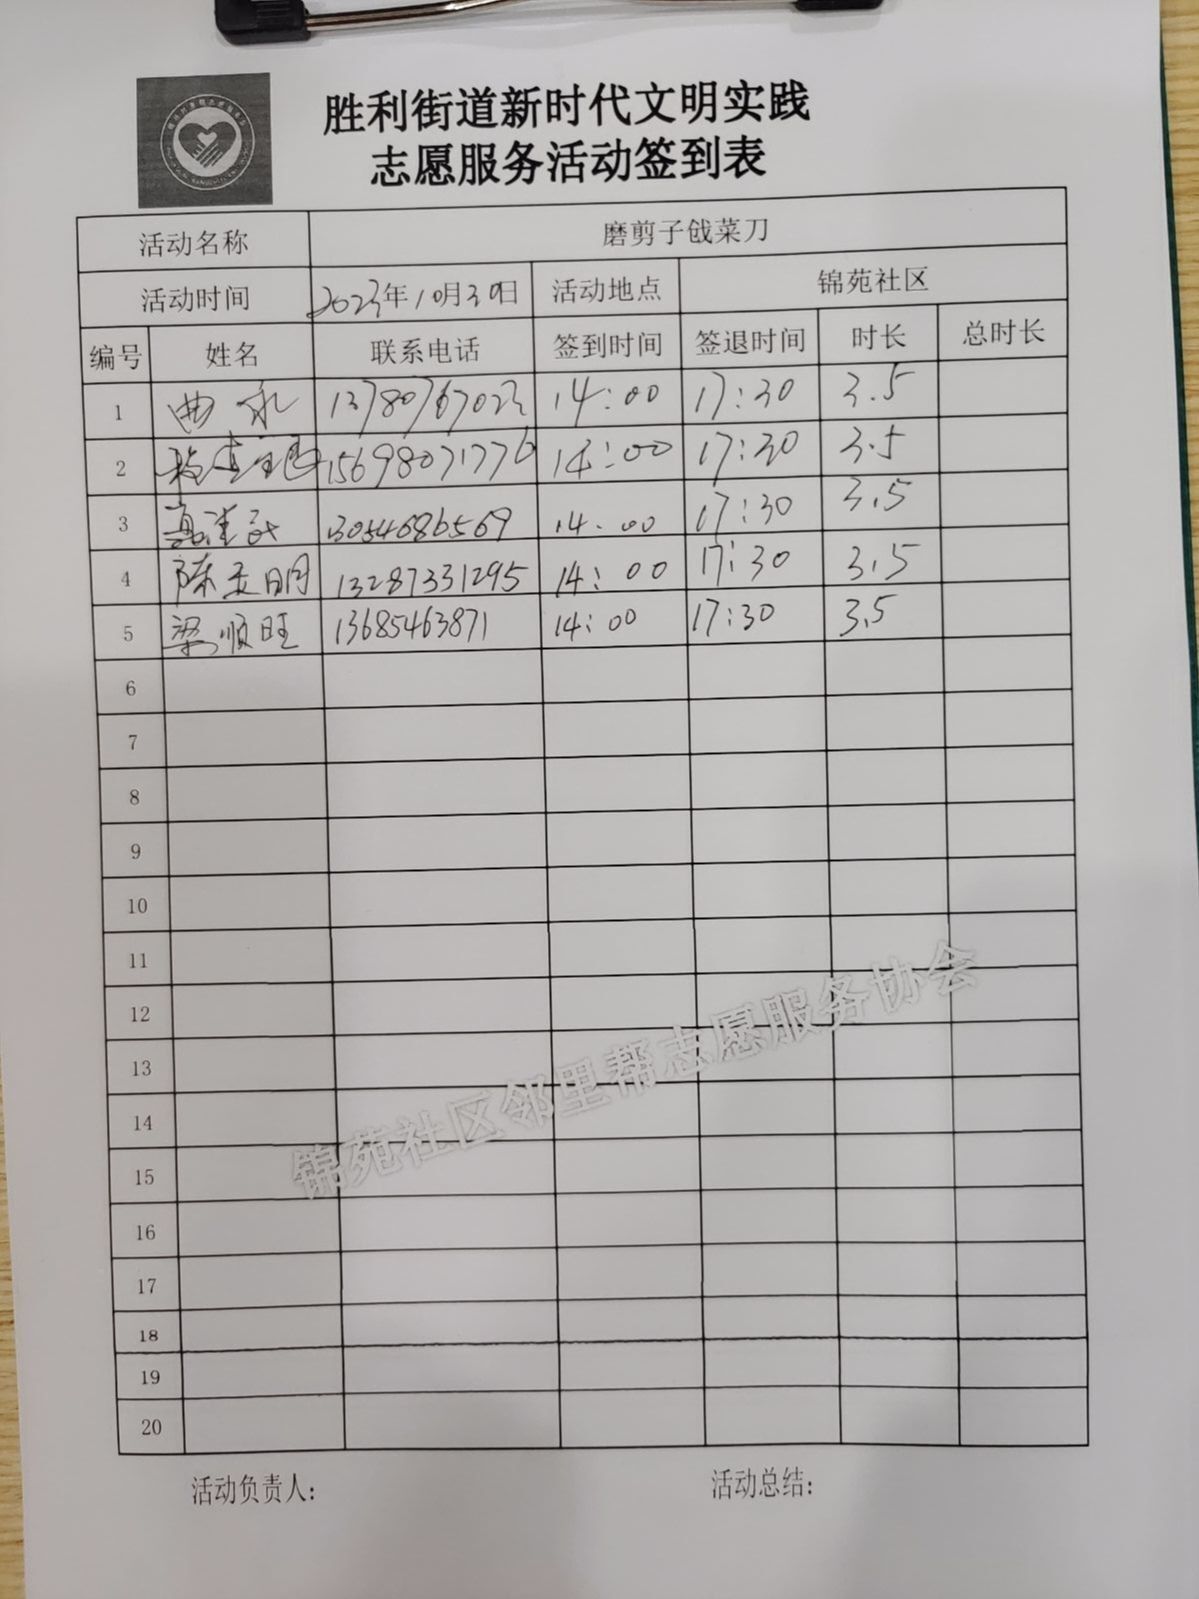 胜利街道新时代文明实践
志愿服务活动签到表
活动名称 磨剪子戗菜刀
活动时间 2023年10月30日 活动地点 锦苑社区
编号 姓名 联系电话 签到时间 签退时间 时长 总时长
1 曲永 13780767023 14:00 17:30 3.5
2 15698071776 14:00 17:30 3.5
3 13054686569 14:00 17:30 3.5
4 陈玉明 13287331295 14:00 17:30 3.5
5 梁顺旺 13685463871 14:00 17:30 3.5
6
7
8
9
10
11
12
13
14
15
16
17
18
19
20
锦苑社区邻里帮志愿服务协会
活动负责人: 活动总结: